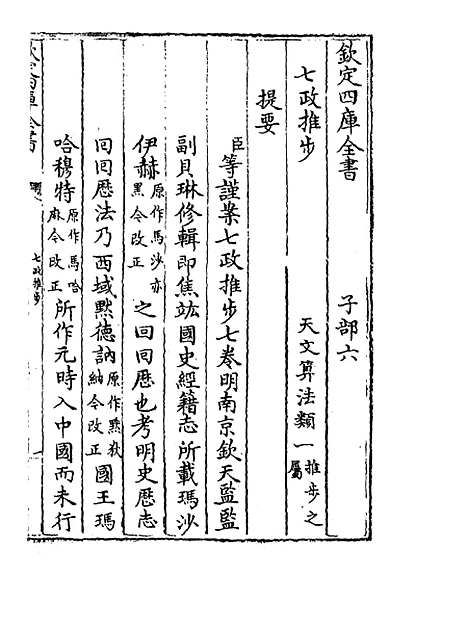 欽定四庫全書 子部六
七政推步 天文算法類一推步之屬
提要
臣等謹案七政推步七卷明南京欽天監監
副貝琳修輯即焦竑國史經籍志所載瑪沙
伊赫原作馬沙亦黑今改正之回回厯也考明史厯志
回回厯法乃西域黙德訥原作黙狄納今改正國王瑪
哈穆特原作馬哈麻今改正所作元時入中國而未行
欽定四庫全書
七政推步